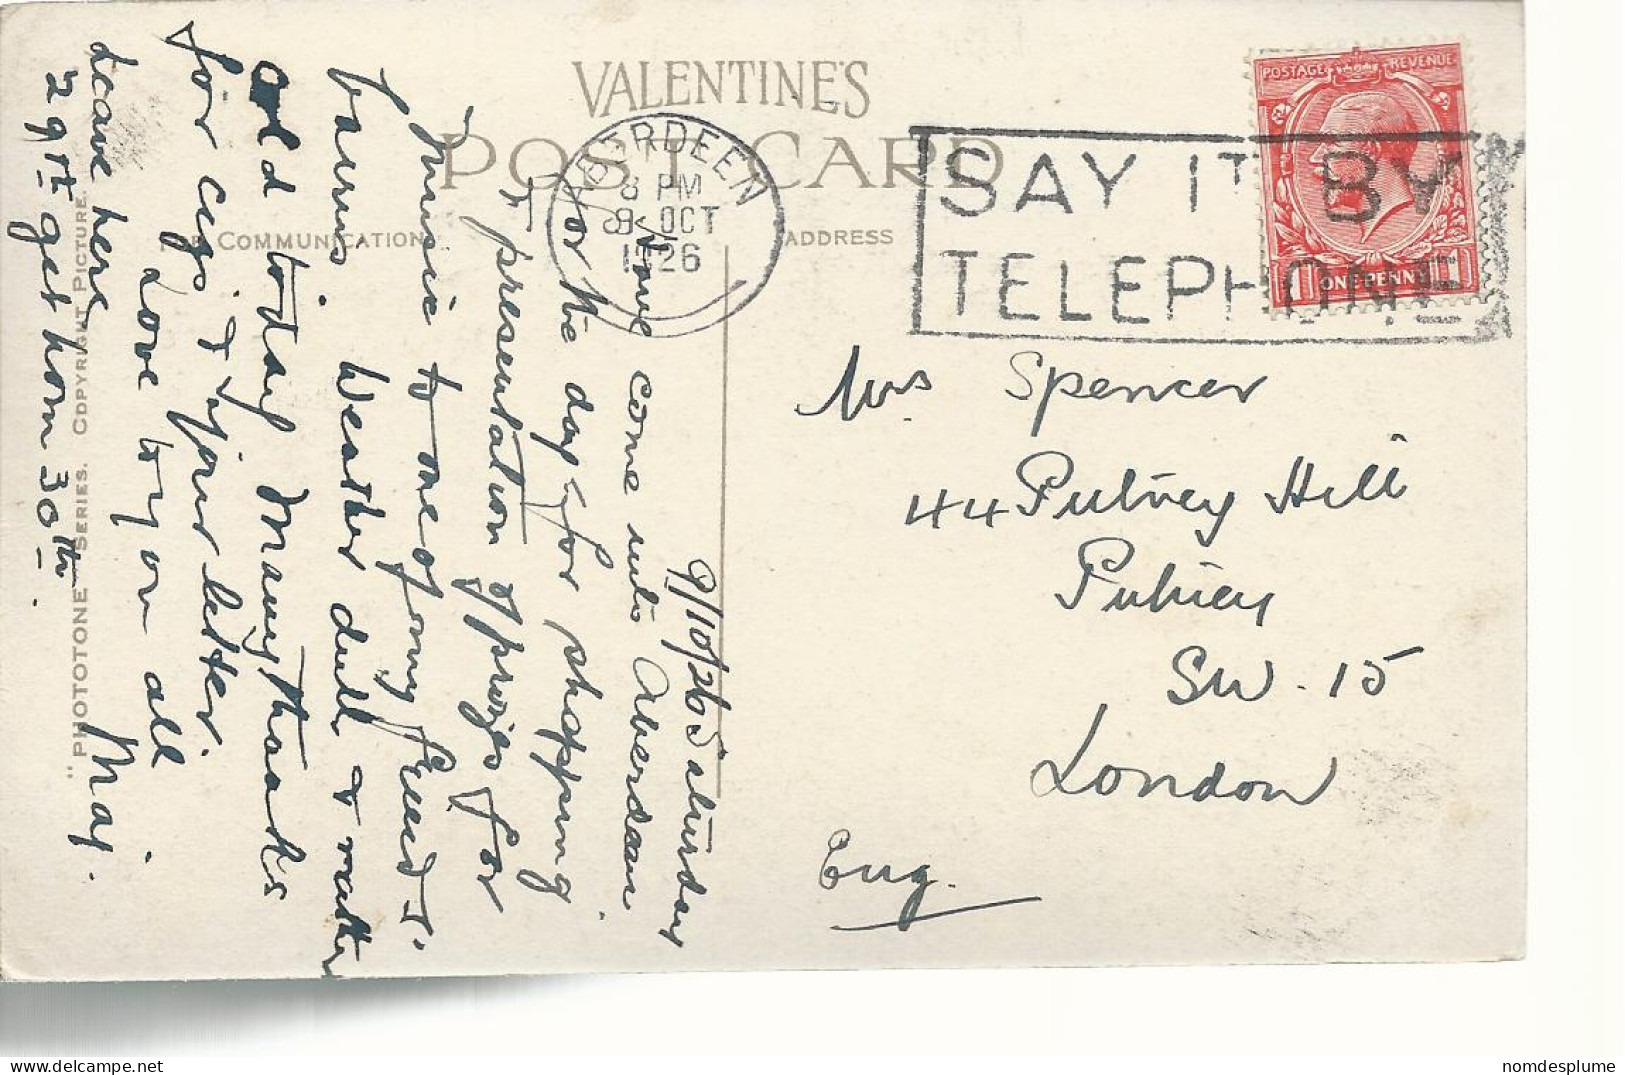 VALENTINE'S
POST CARD
FOR COMMUNICATION
ADDRESS
ABERDEEN
8 PM
9 OCT
1926
SAY IT BY
TELEPHONE
POSTAGE REVENUE
ONE PENNY
9/10/26 Saturday
Have come into Aberdeen
for the day for shopping
& presentation of prizes for
music to one of my friends &
Weather dull & rather
cold today Many thanks
for cigs & your letter.
Love to you all
May.
Leave here
29th get home 30th.
Mrs Spencer
44 Putney Hill
Putney
SW. 15
London
Eng.
"PHOTOTONE" SERIES. COPYRIGHT PICTURE.
nomdesplume